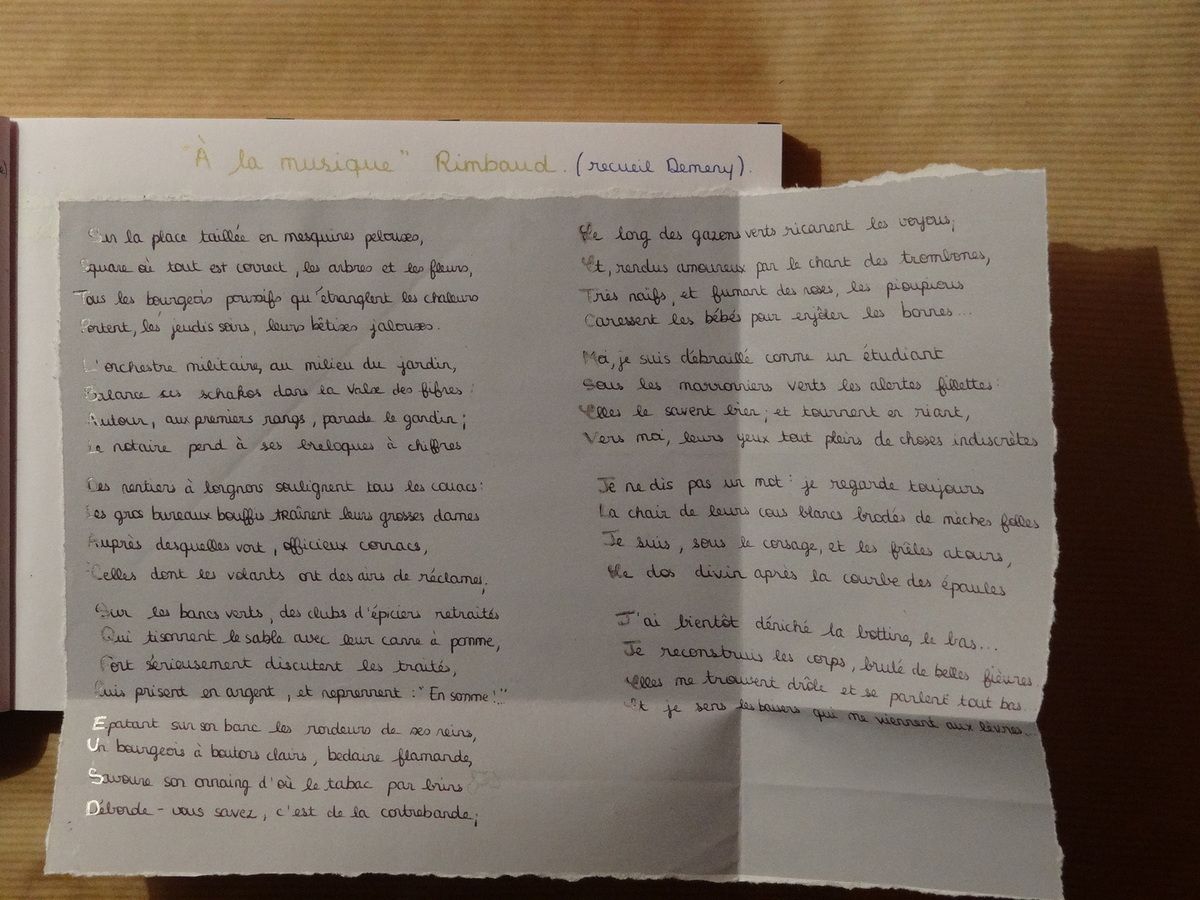 "À la musique" Rimbaud. (recueil Demeny).
Sur la place taillée en mesquines pelouses,
Square où tout est correct, les arbres et les fleurs,
Tous les bourgeois poussifs qu'étranglent les chaleurs
Portent, les jeudis soirs, leurs bêtises jalouses.
L'orchestre militaire, au milieu du jardin,
Balance ses schakos dans la Valse des fifres :
Autour, aux premiers rangs, parade le gandin ;
Le notaire pend à ses breloques à chiffres
Des rentiers à lorgnons soulignent tous les couacs :
Les gros bureaux bouffis traînent leurs grosses dames
Auprès desquelles vont, officieux cornacs,
Celles dont les volants ont des airs de réclames ;
Sur les bancs verts, des clubs d'épiciers retraités
Qui tisonnent le sable avec leur canne à pomme,
Fort sérieusement discutent les traités,
Puis prisent en argent, et reprennent : "En somme !.."
Epatant sur son banc les rondeurs de ses reins,
Un bourgeois à boutons clairs, bedaine flamande,
Savoure son onnaing d'où le tabac par brins
Déborde - vous savez, c'est de la contrebande ;
Le long des gazons verts ricanent les voyous ;
Et, rendus amoureux par le chant des trombones,
Très naïfs, et fumant des roses, les pioupious
Caressent les bébés pour enjôler les bonnes...
Moi, je suis débraillé comme un étudiant
Sous les marronniers verts les alertes fillettes :
Elles le savent bien ; et tournent en riant,
Vers moi, leurs yeux tout pleins de choses indiscrètes
Je ne dis pas un mot : je regarde toujours
La chair de leurs cous blancs brodés de mèches folles
Je suis, sous le corsage, et les frêles atours,
Le dos divin après la courbe des épaules
J'ai bientôt déniché la bottine, le bas...
Je reconstruis les corps, brulé de belles fièvres.
Elles me trouvent drôle et se parlent tout bas.
Et je sens les baisers qui me viennent aux lèvres...